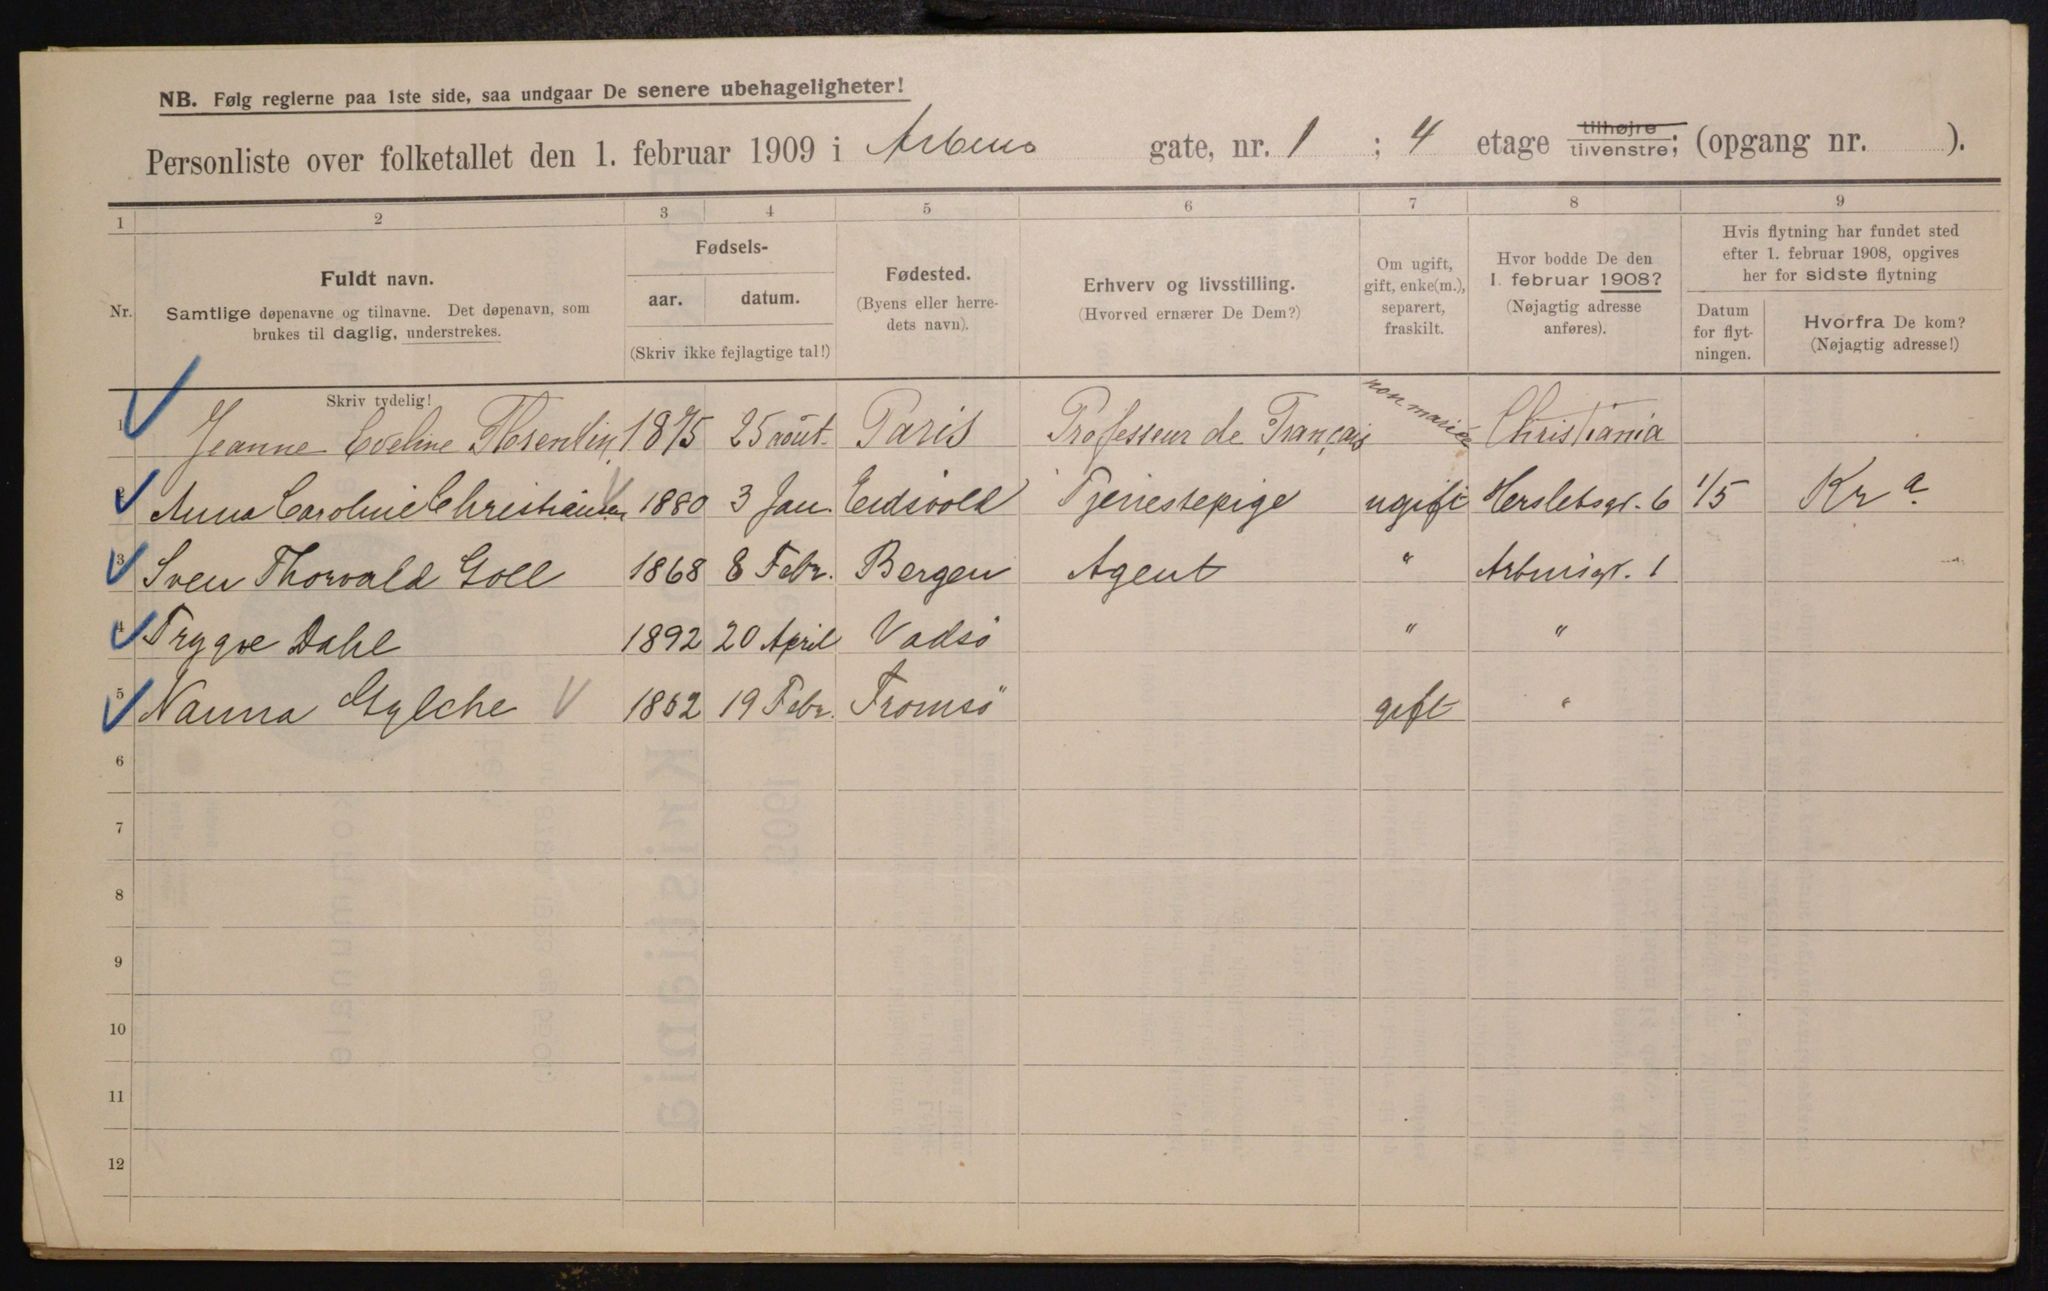 NB. Følg reglerne paa 1ste side, saa undgaar De senere ubehageligheter!
Personliste over folketallet den 1. februar 1909 i Arbens gate, nr. 1 ; 4 etage tilhøjre tilvenstre; (opgang nr. ).
1 2 3 4 5 6 7 8 9
Nr.
Fuldt navn.
Samtlige døpenavne og tilnavne. Det døpenavn, som
brukes til daglig, understrekes.
Skriv tydelig!
Fødsels-
aar. datum.
(Skriv ikke fejlagtige tal!)
Fødested.
(Byens eller herre-
dets navn).
Erhverv og livsstilling.
(Hvorved ernærer De Dem?)
Om ugift,
gift, enke(m.),
separert,
fraskilt.
Hvor bodde De den
1. februar 1908?
(Nøjagtig adresse
anføres).
Hvis flytning har fundet sted
efter 1. februar 1908, opgives
her for sidste flytning
Datum
for flyt-
ningen.
Hvorfra De kom?
(Nøjagtig adresse!)
1 Jeanne Eveline 1875 25 août. Paris Professeur de Français non mariée Christiania
2 Anna Caroline Christiansen 1880 3 Jan. Eidsvold Tjenestepige ugift Herslebsgt. 6 1/5 Kr a.
3 Sven Thorvald Goll 1868 8 Febr. Bergen Agent " Arbinsgt. 1
4 Trygve Dahl 1892 20 April Vadsö " "
5 Nanna 1862 19 Febr. Tromsö gift "
6
7
8
9
10
11
12